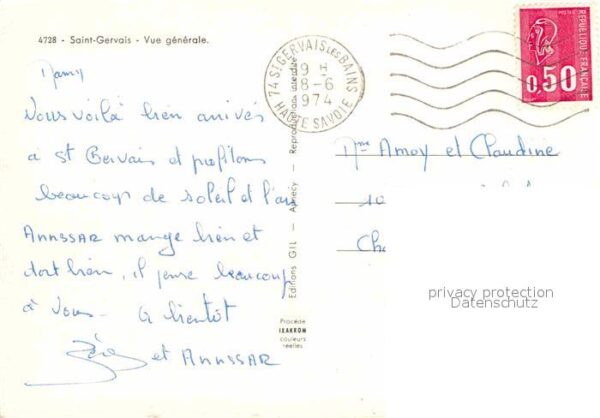 4728 - Saint-Gervais - Vue générale.
Mamy
Nous voilà bien arrivés
à St Gervais et profitons
beaucoup de soleil et l'air
ANNSSAR mange bien et
dort bien, il pense beaucoup
à vous. A bientôt
et ANNSSAR
Editions GIL - Annecy - Reproductions interdite
Procédé
IXAKROM
couleurs
réelles
74 ST GERVAIS LES BAINS
9 H
8-6
1974
HAUTE SAVOIE
POSTES
REPUBLIQUE FRANÇAISE
0,50
Mme Amoy et Claudine
10
Ch
privacy protection
Datenschutz